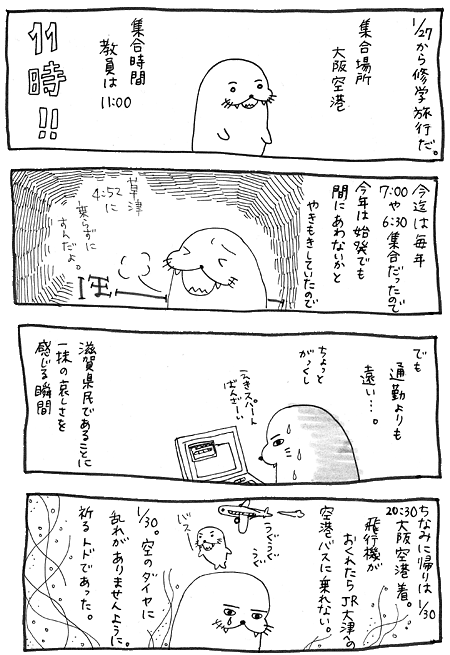 1/27から修学旅行だ。
集合場所
大阪空港
集合時間
教員は
11:00
11時!!
今迄は毎年
7:00や6:30
集合だったので
今年は始発でも
間にあわないかと
やきもきしていたので
草津
4:52に
乗らずに
すんだよ。
でも
通勤よりも
遠い…。
ちょっと
がっくし
えきスパート
ばんざーい
滋賀県民であることに
一抹の哀しさを
感じる瞬間
ちなみに帰りは1/30
20:30大阪空港着。
飛行機が
おくれたらJR大津への
空港バスに乗れない。
うぐうぐ
うぐ
バス
1/30。空のダイヤに
乱れがありませんように。
祈るトドであった。